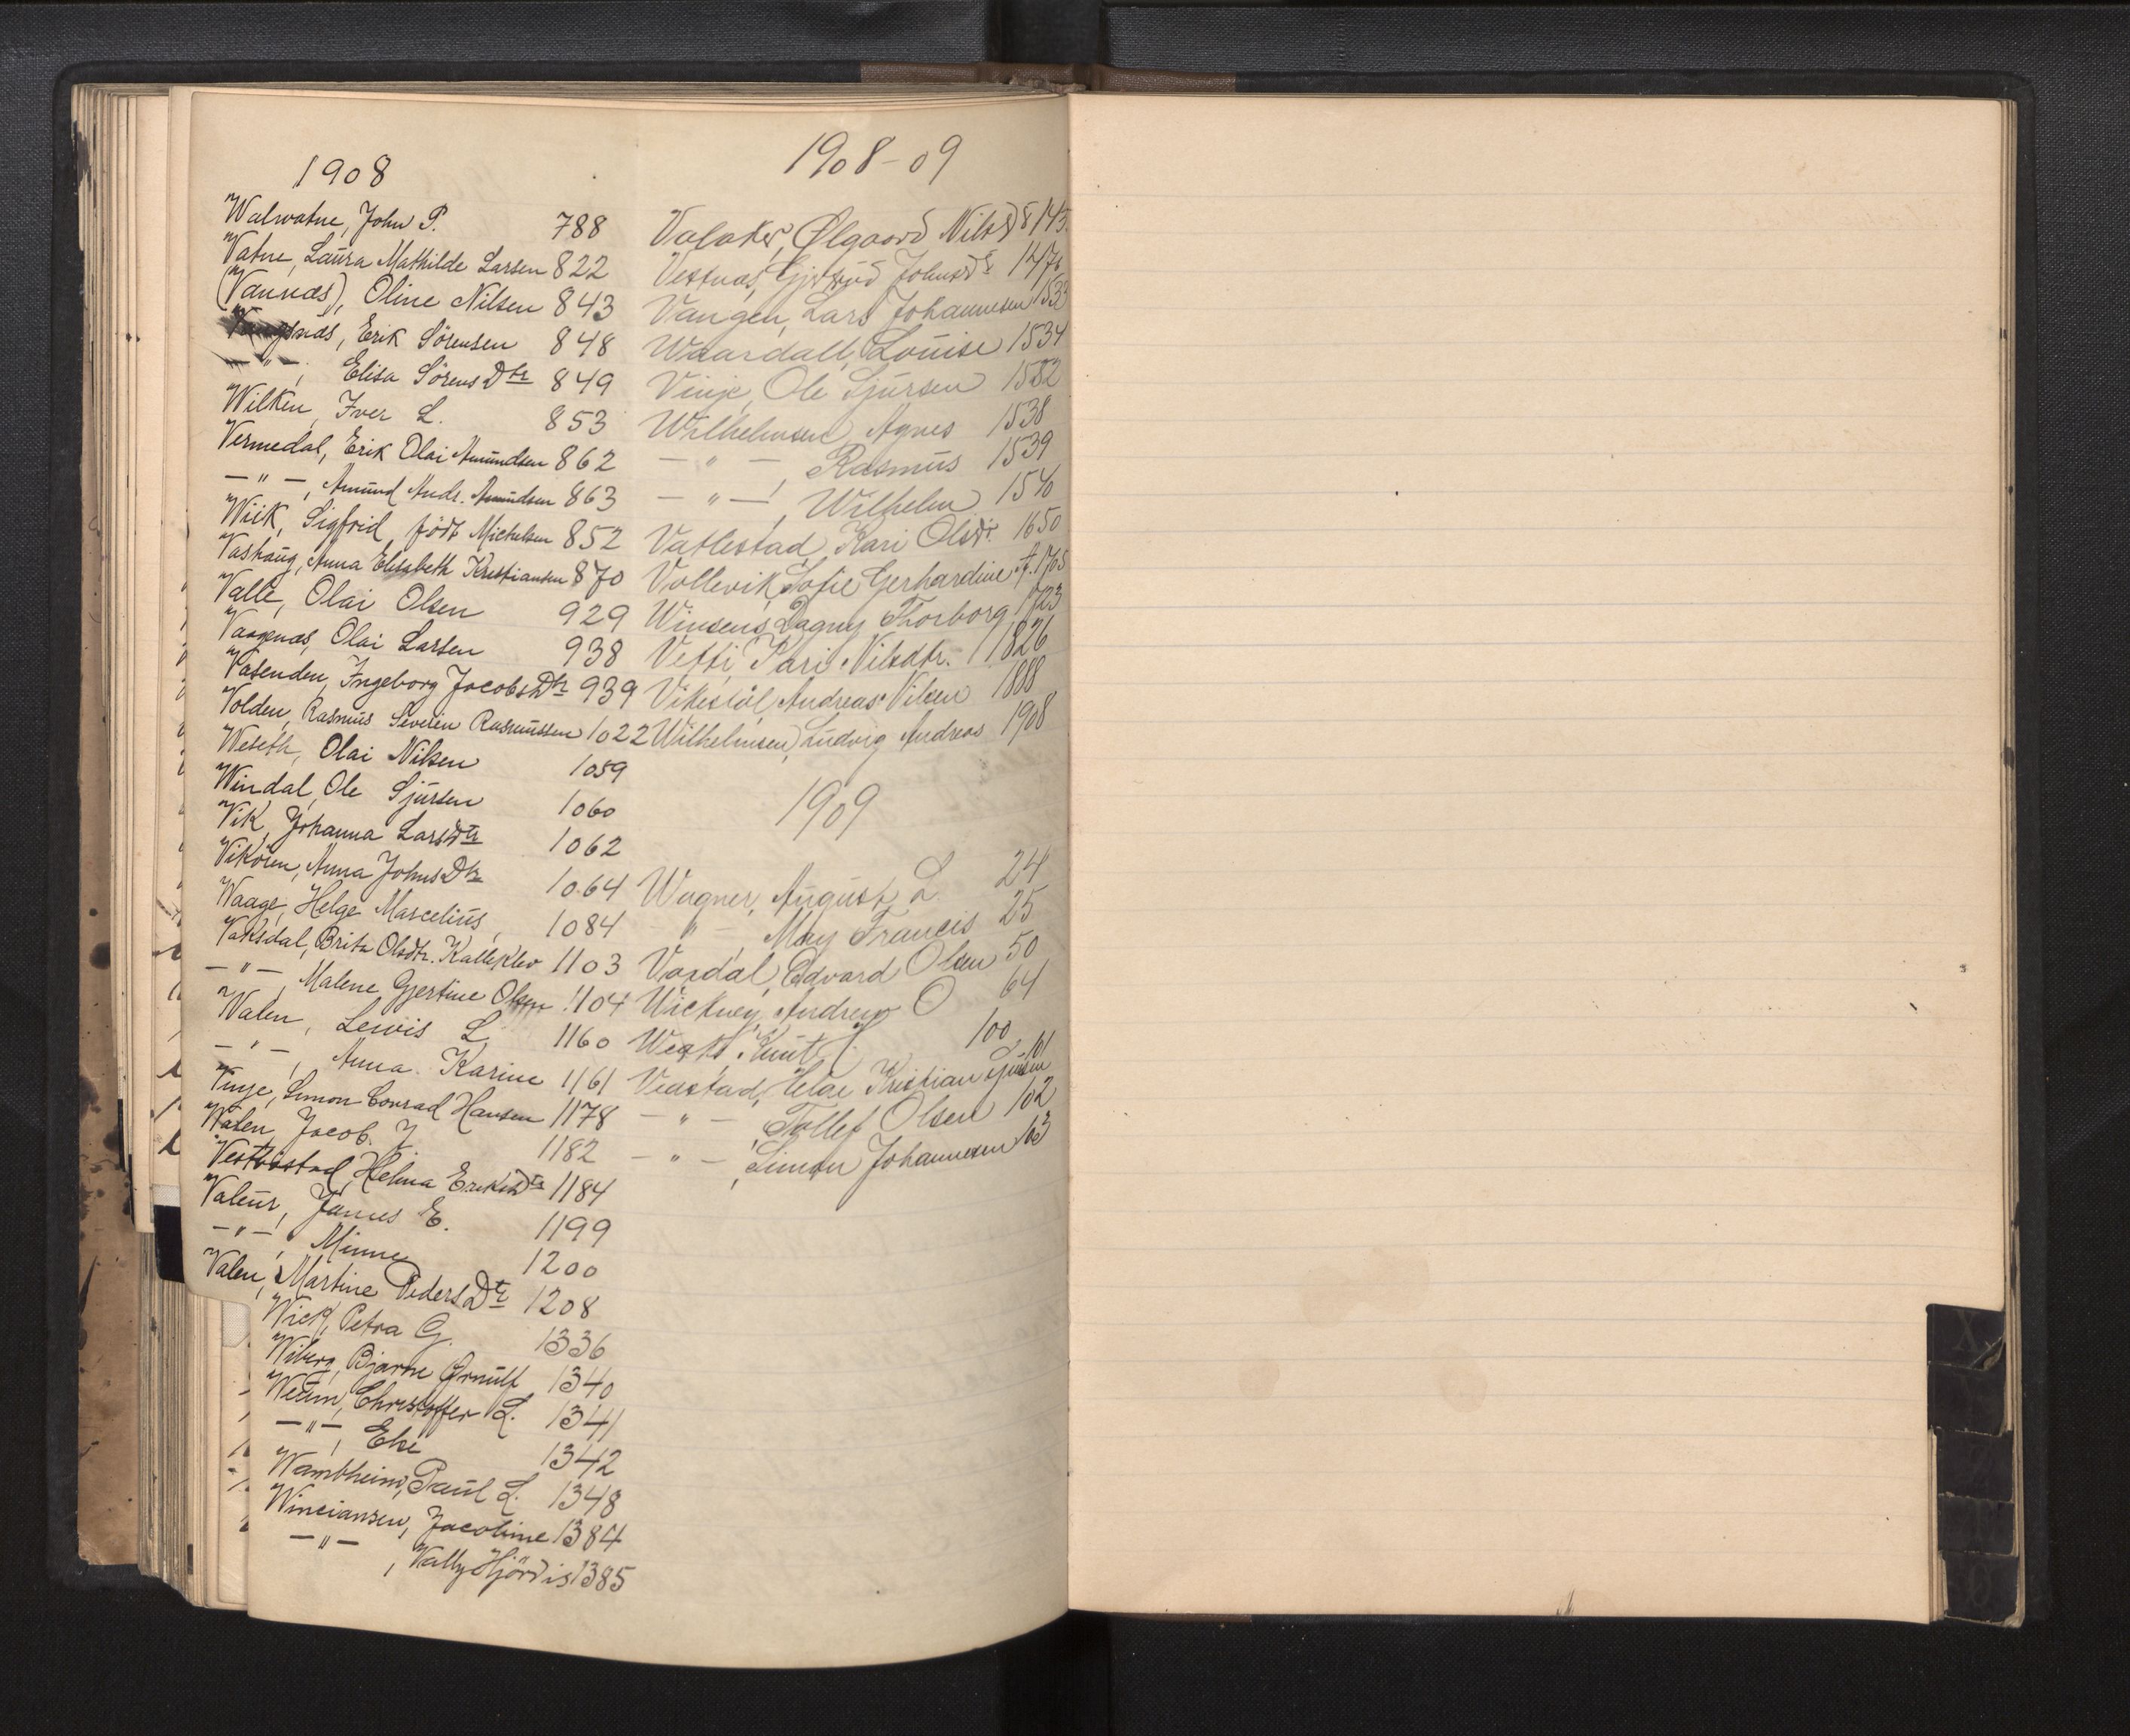 1908
Walvatne, John P. 788
Vatne, Laura Mathilde Larsen 822
(Vannæs), Oline Nilsen 843
Erik Sörensen 848
—"—, Elisa Sörens Dtr 849
Wilken, Iver L. 853
Vermedal, Erik Olai Amundsen 862
—"—, Amund Andr. Amundsen 863
Wiik, Sigfrid, födt Michelsen 852
Vashaug, Anna Elisabeth Kristiansen 870
Valle, Olai Olsen 929
Vaagenæs, Olai Larsen 938
Vasenden, Ingeborg Jacobs Dtr 939
Volden, Rasmus Severin Rasmussen 1022
Weseth, Olai Nilsen 1059
Windal, Ole Sjursen 1060
Vik, Johanna Lars Dtr 1062
Vikören, Anna Johns Dtr 1064
Waage, Helge Marcelius, 1084
Vaksdal, Brita Olsdtr. Kalleklev 1103
—"—, Malene Gjertine Olsen 1104
Valen, Lewis L. 1160
—"—, Anna Karine 1161
Vinje, Simon Conrad Hansen 1178
Valen, Jacob J. 1182
Helina Eriks Dtr 1184
Valeur, James E. 1199
—"—, Minne 1200
Valen, Martine Peders Dtr 1208
Wick, Petra G. 1336
Wiberg, Bjarne Ørnulf 1340
Christoffer L. 1341
—"—, 1342
Wambheim, Paul L. 1348
Winciansen, Jacobine 1384
—"—, Wally Hjördis 1385
1908-09
Valaker, Ølgaard Nilsd
Vestnæs, Gjertrud Johnsdtr 1476
Vangen, Lars Johannesen 1533
Waardall, Louise 1534
Vinje, Ole Sjursen 1582
Wilhelmsen, Agnes 1538
—"—, Rasmus 1539
—"—, Wilhelm 1540
Vatlestad, Kari Olsdtr. 1650
Vollevik, Sofie Gerhardine f. 1705
Winsens, Dagny Thorborg 1723
Vetti, Kari Nilsdtr. 1826
Vikestöl, Andreas Nilsen 1888
Wilhelmsen, Ludvig Andreas 1908
1909
Wagner, August L. 24
—"—, May Francis 25
Vardal, Edvard Olsen 50
Wickney, Andrew O 64
Knut J 100
Vedstad, Helge Kristian 101
—"—, Tollef Olsen 102
—"—, Simon Johannesen 103
X